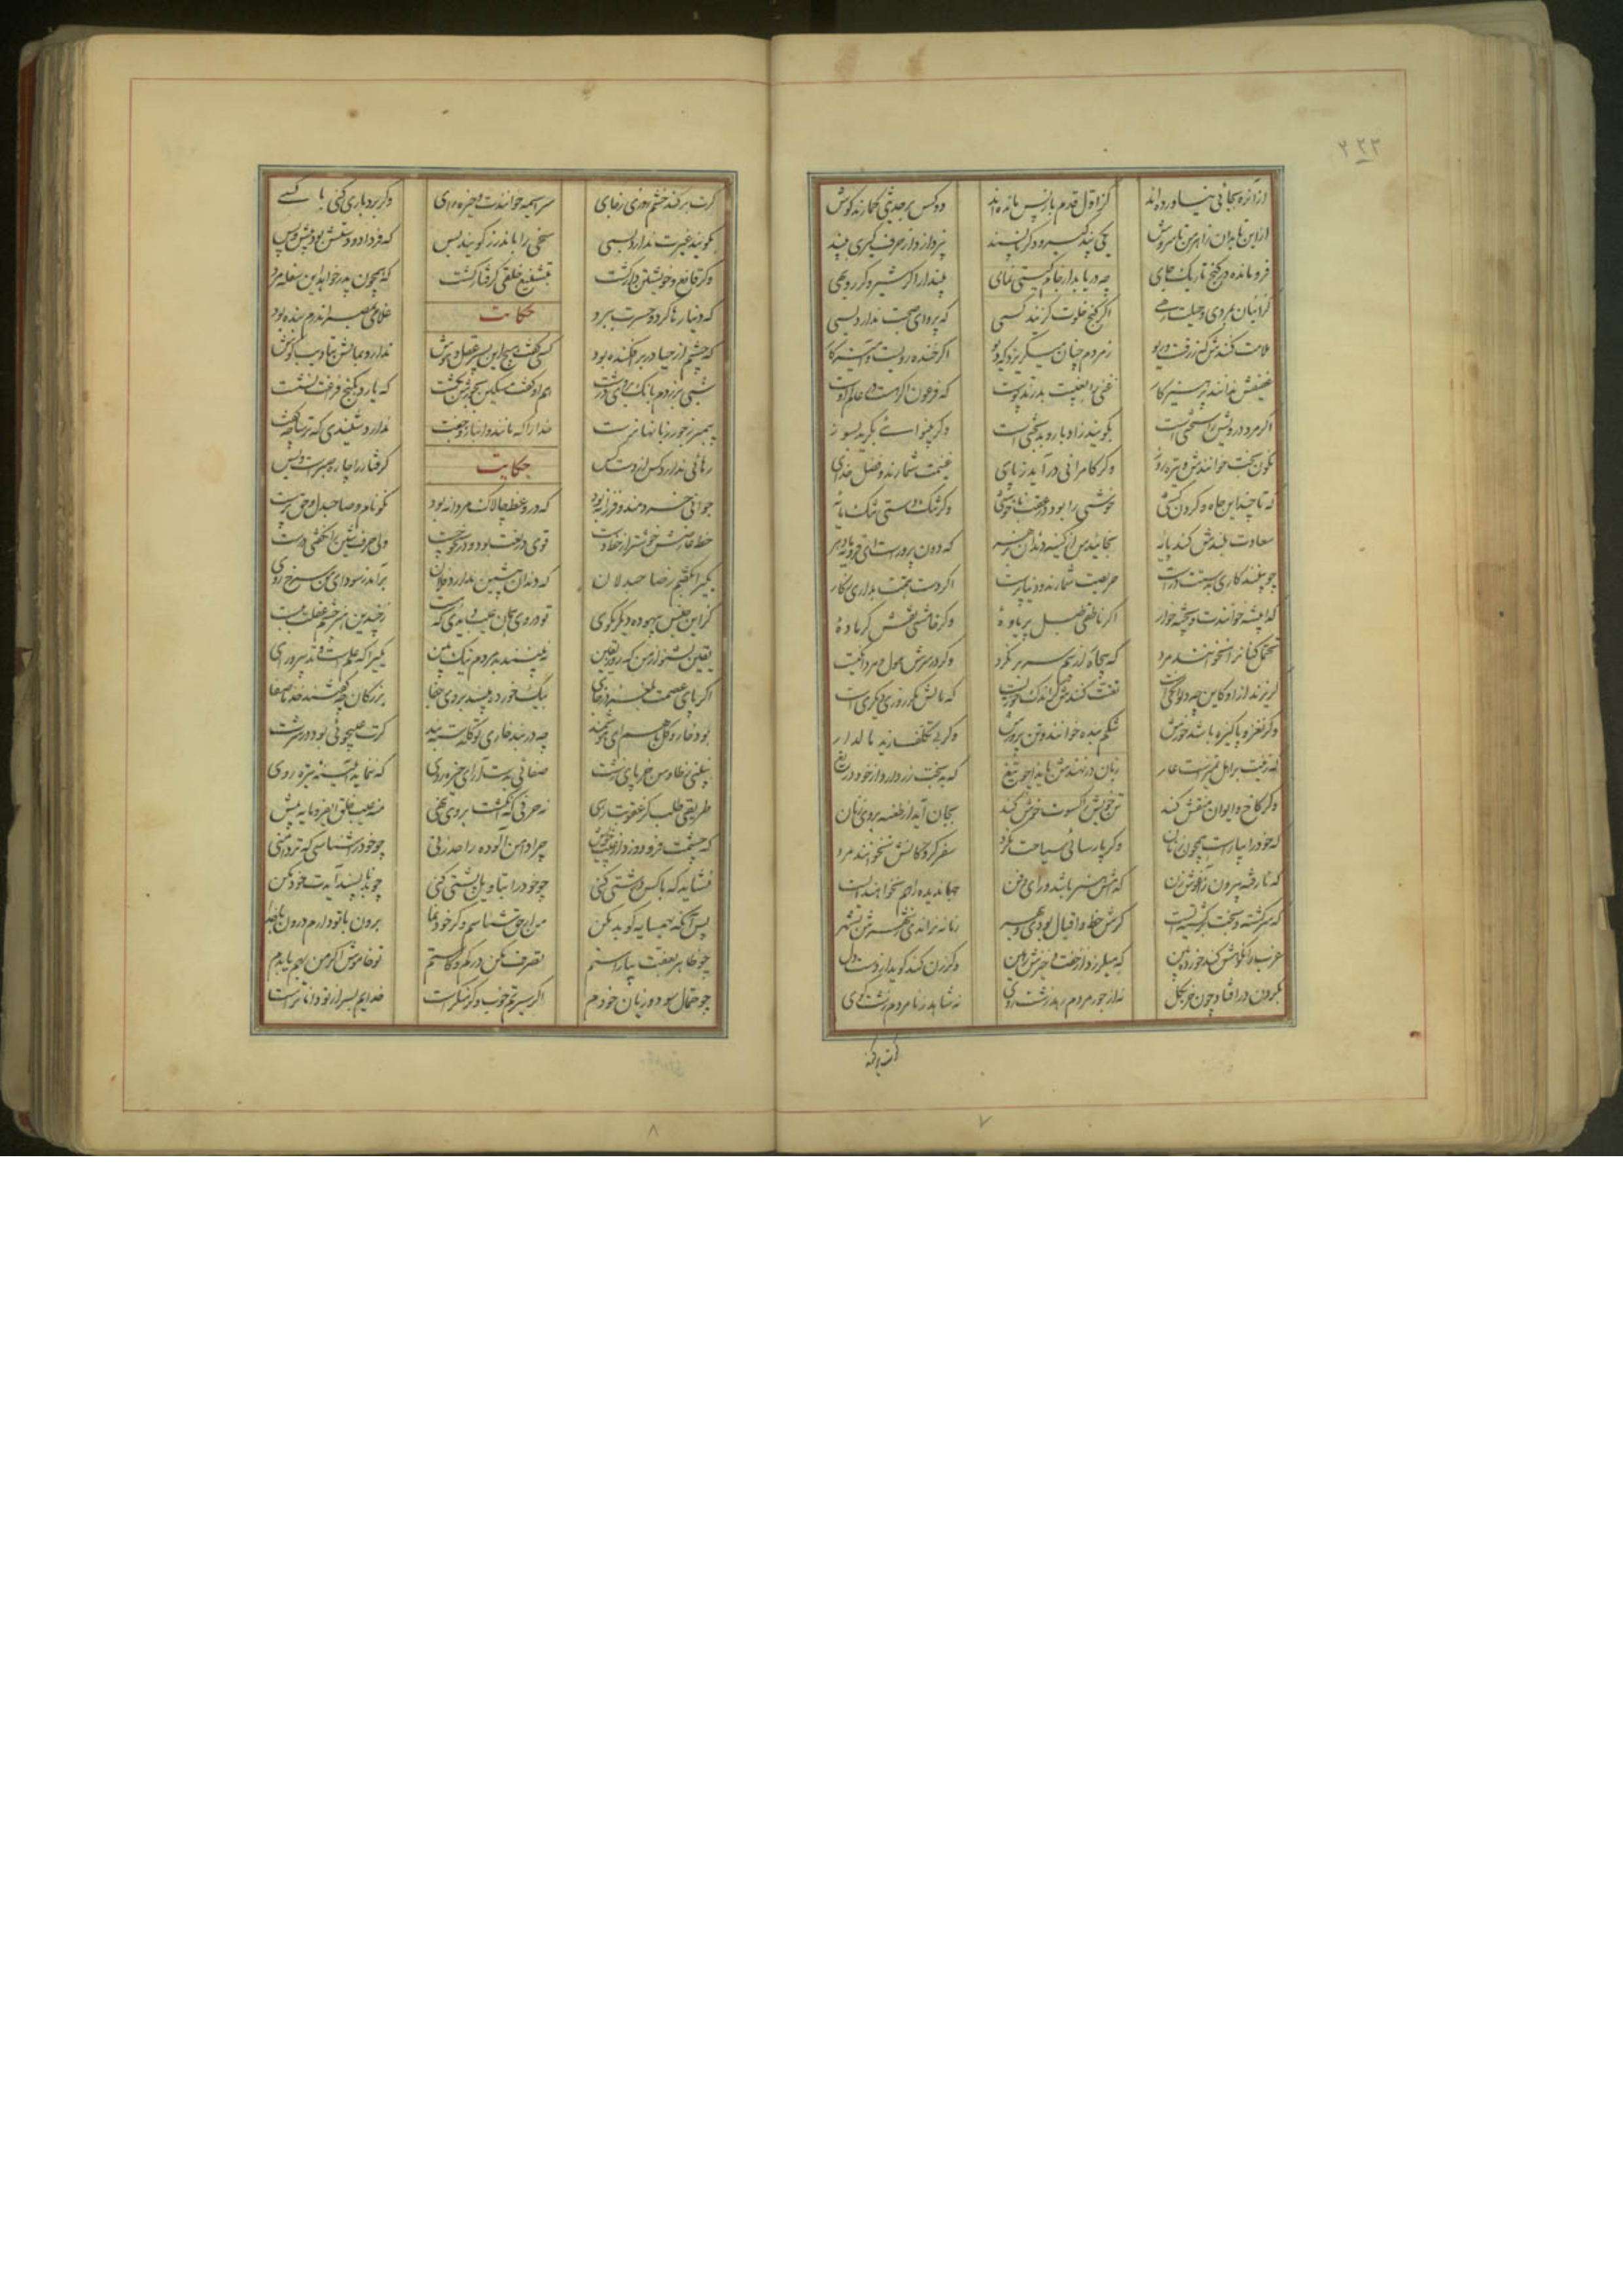 ۲۲۳
از آن ره بجائی نیاورده اند کز اول قدم باز پس مانده اند دو کس بر حدیثی گمارند گوش
ازین تا بدان زاهرمن تا سروش یکی پند گیرد دگر ناپسند نپردازد از حرف گیری به پند
فرومانده در کنج تاریک جای چه دریابد از جام گیتی نمای مپندار اگر شیر و گر روبهی
کز اینان بمردی و حیلت رهی اگر کنج خلوت گزیند کسی که پروای صحبت ندارد بسی
ملامت کنندش که زرقست و ریو ز مردم چنان میگریزد که دیو اگر خنده رویست و آمیزگار
عفیفش ندانند و پرهیزکار غنی را بغیبت بدرند پوست که فرعون اگر هست در عالم اوست
اگر مرد درویش در سختی است بگویند ز ادبار و بدبختی است وگر بینوائی بگرید بسوز
نگون بخت خوانندش و تیره روز وگر کامرانی درآید ز پای غنیمت شمارند و فضل خدای
که تا چند ازین جاه و گردن کشی خوشی را بود در عقب ناخوشی وگر تنگ دستی تنک مایهٔ
سعادت بلندش کند پایهٔ بخایندش از کینه دندان بزهر که دون پرورست این فرومایه دهر
چو بینند کاری بدستت درست حریصت شمارند و دنیا پرست اگر دست همت بداری ز کار
گدا پیشه خوانندت و پخته خوار اگر ناطقی طبل پر یاوهٔ وگر خامشی نقش گرماوهٔ
تحمل کنان را نخوانند مرد که بیچاره از بیم سر بر نکرد وگر در سرش هول و مردانگیست
گریزند ازو کاین چه دیوانگیست تعنت کنندش گر اندک خوریست که مالش مگر روزی دیگریست
وگر نغز و پاکیزه باشد خورش شکم بنده خوانند و تن پرورش وگر بی تکلف زید مالدار
که زینت بر اهل تمیزست عار زبان در نهندش بایذا چو تیغ که بدبخت زر دارد از خود دریغ
وگر کاخ و ایوان منقش کند تن خویش را کسوت خوش کند بجان آید از طعنه بر وی زنان
که خود را بیاراست همچون زنان وگر پارسائی سیاحت نکرد سفر کردگانش نخوانند مرد
که نارفته بیرون ز آغوش زن کدامش هنر باشد و رای و فن جهاندیده را هم
که سرگشته و بخت برگشته اوست گرش حظ و اقبال بودی و بهر زمانه نراندی ز شهرش بشهر
عزب را نکوهش کند خورده بین که میلرزد از خفت و خیزش زمین وگر زن کند گوید از دست دل
بگردن درافتاد چون خر بگل نه از جور مردم رهد زشت روی نه شاهد ز نامردم زشت گوی
گرت برکند
۷
گرت برکند خشم روزی ز جای سراسیمه خوانندت و خیره رای وگر بردباری کنی با کسی
بگویند غیرت ندارد بسی سخی را باندرز گویند بس که فردا دو دستش بود پیش و پس
وگر قانع و خویشتن دار گشت بتشنیع خلقی گرفتار گشت که همچون پدر خواهد این سفله مرد
که دنیا رها کرد و حسرت ببرد حکایت غلامی بمصر اندرم بنده بود
که چشم از حیا در بر افکنده بود کسی گفت هیچ این پسر عقل و هوش ندارد بمالش بتادیب گوش
شبی بر زدم بانگ بر وی درشت هم او گفت مسکین بجورش بکشت که یارد بکنج فراغت نشست
پیمبر ز جور زبانها نرست خدا را که مانند و انباز و جفت ندارد شنیدی که ترسا چه گفت
رهائی ندارد کس از دست کس حکایت گرفتار را چاره صبرست و بس
جوانی خردمند و فرزانه بود که در وعظ چالاک و مردانه بود نکو نام و صاحبدل و حق پرست
خط عارضش خوشتر از خط دست قوی در لغت بود و در نحو چست ولی حرف ابجد نگفتی درست
یکی را بگفتم ز صاحبدلان که دندان پیشین ندارد فلان برآمد ز سودای من سرخ روی
کزین جنس بیهوده دیگر مگوی تو در وی همان عیب دیدی که هست ز چندین هنر چشم عقلت ببست
یقین بشنو از من که روز یقین نه بینند بد مردم نیک بین یکی را که علمست و تدبیر و رای
گرش پای عصمت بلغزد ز جای بیک خورده مپسند بر وی جفا بزرگان چه گفتند خذ ما صفا
بود خار و گل با هم ای هوشمند چه در بند خاری تو گلدسته بند کرا زشت خوئی بود در سرشت
نه بیند ز طاوس جز پای زشت صفائی بدست آر ای خیره روی که ننماید آئینه تیره روی
طریقی طلب کز عقوبت رهی نه حرفی که انگشت بر وی نهی منه عیب خلق ای فرومایه پیش
که چشمت فرو دوزد از عیب خویش چرا دامن آلوده را حد زنی چو خود را شناسی که تر دامنی
نشاید که با کس درشتی کنی چو خود را بتاویل پشتی کنی چو بد ناپسند آیدت خود مکن
پس آنگه بهمسایه گو بد مکن من ار حق شناسم وگر خودنما برون با تو دارم درون با خدا
چو ظاهر بعفت بیاراستم تصرف مکن در کم و کاستم تو خاموش اگر من بهم یا بدم
چو حمال سود و زیان خودم اگر سیرتم خوب وگر منکرست خدایم بسر از تو داناترست
۸